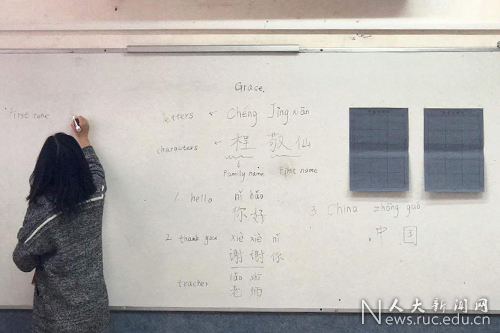 Grace,
First name
letters Chéng Jìng xiān
characters 程 敬 仙
Family name First name
1. hello nǐ hǎo
你 好
3. China zhōng guó
中 国
2. thank you xiè xiè nǐ
谢 谢 你
teacher lǎo shī
老 师
人大新闻网
News.ruc.edu.cn